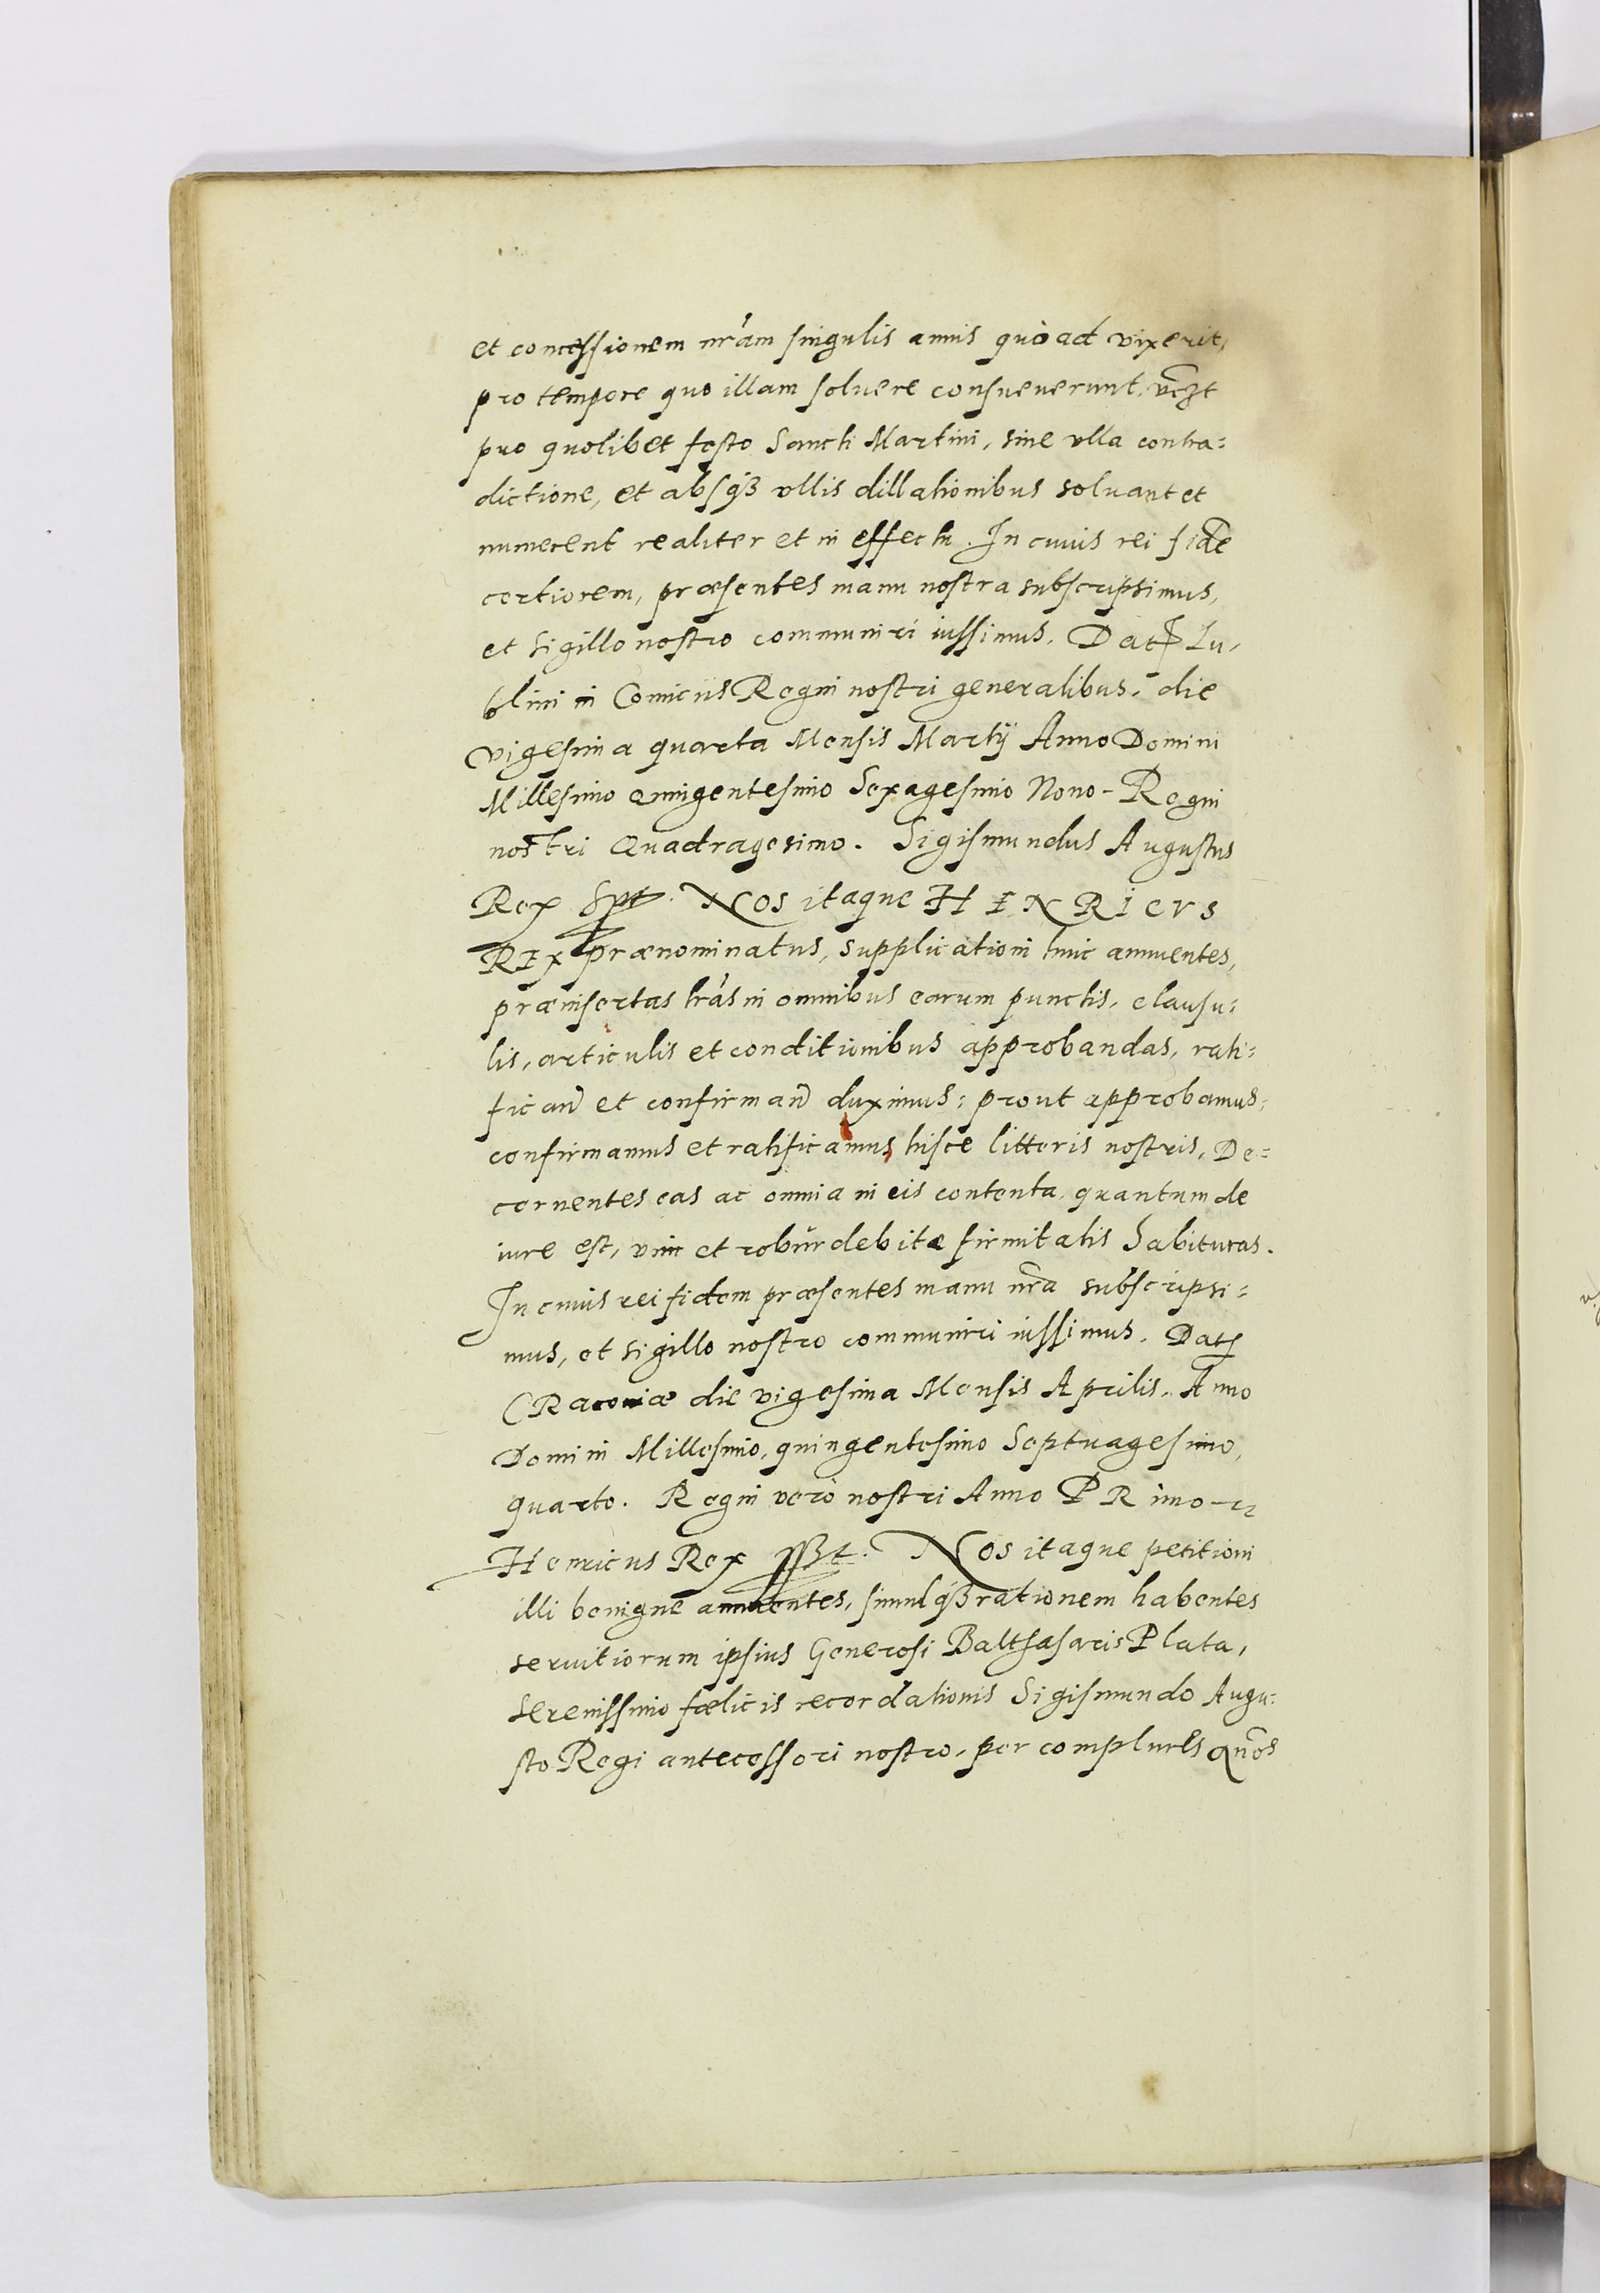 et concessionem nrãm singulis annis quòad vixerit,
pro tempore quo illam soluere consueuerunt, vczt
pro quolibet festo Sancti Martini, sine vlla contra=
dictione, et absqз vllis dillationibus soluant et
numerent realiter et in effectu. In cuius rei fidē
certiorem, præsentes manu nostra subscripsimus,
et sigillo nostro communiri iussimus. Dat Lu-
blini in Comitiis Regni nostri generalibus, die
vigesima quarta Mensis Martij Anno Domini
Millesimo Quingentesimo Sexagesimo Nono- Regni
nostri Quadragesimo. Sigismundus Augustus
Rex Nos itaque HENRICVS
REX prænominatus, supplicationi huic annuentes,
præinsertas lrãs in omnibus earum punctis, clausu=
lis, articulis et conditionibus approbandas, rati=
fican̄ et confirman̄ duximus: prout approbamus,
confirmamus et ratificamus hisce litteris nostris, De=
cernentes eas ac omnia in eis contenta, quantum de
iure est, vim et robur debitæ firmitatis habituras.
In cuius rei fidem præsentes manu nrã subscripsi=
mus, et sigillo nostro communiri iussimus. Dat
CRacouiæ die vigesima Mensis Aprilis, Anno
Domini Millesimo, quingentesimo Septuagesimo,
quarto. Regni verò nostri Anno PRimo-
Henricus Rex Nos itaque petitioni
illi benigne annuentes, simulqз rationem habentes
seruitiorum ipsius Generosi Balthasaris Plata,
Serenissimo fœlicis recordationis Sigismundo Augu=
sto Regi antecessori nostro, per complures